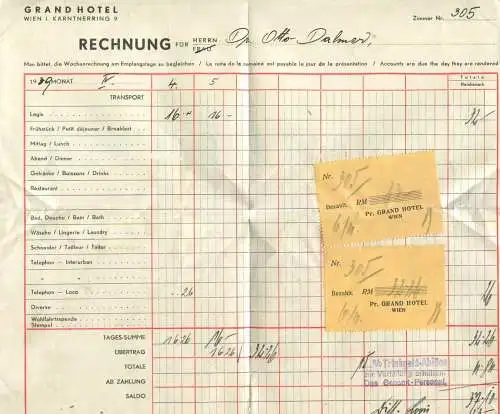 GRAND HOTEL
WIEN I. KÄRNTNERRING 9
Zimmer Nr. 305
RECHNUNG FÜR HERRN FRAU Dr. Otto Dalmer,
Man bittet, die Wochenrechnung am Empfangstage zu begleichen / La note de la semaine est payable le jour de la présentation / Accounts are due the day they are rendered
1939 MONAT IV. 4. 5 Totale
Reichsmark
TRANSPORT
Logis 16.- 16- 32-
Frühstück / Petit déjeuner / Breakfast
Mittag / Lunch
Abend / Dinner
Getränke / Boissons / Drinks
Restaurant
Bad, Douche / Bain / Bath
Wäsche / Lingerie / Laundry
Schneider / Tailleur / Tailor
Telephon - Interurban
Telephon - Loco -.26
Diverse
Wohlfahrtsspende
(Stempel)
TAGES-SUMME 16.26 16- 32.26
ÜBERTRAG 16.26 32.26
TOTALE
AB ZAHLUNG
SALDO
Nr. 305
Bezahlt. RM
Pr. GRAND HOTEL
WIEN
Nr. 305
Bezahlt. RM
Pr. GRAND HOTEL
WIEN
% Trinkgeld-Ablöse
zur Verteilung erhalten.
Das Gesamt-Personal.